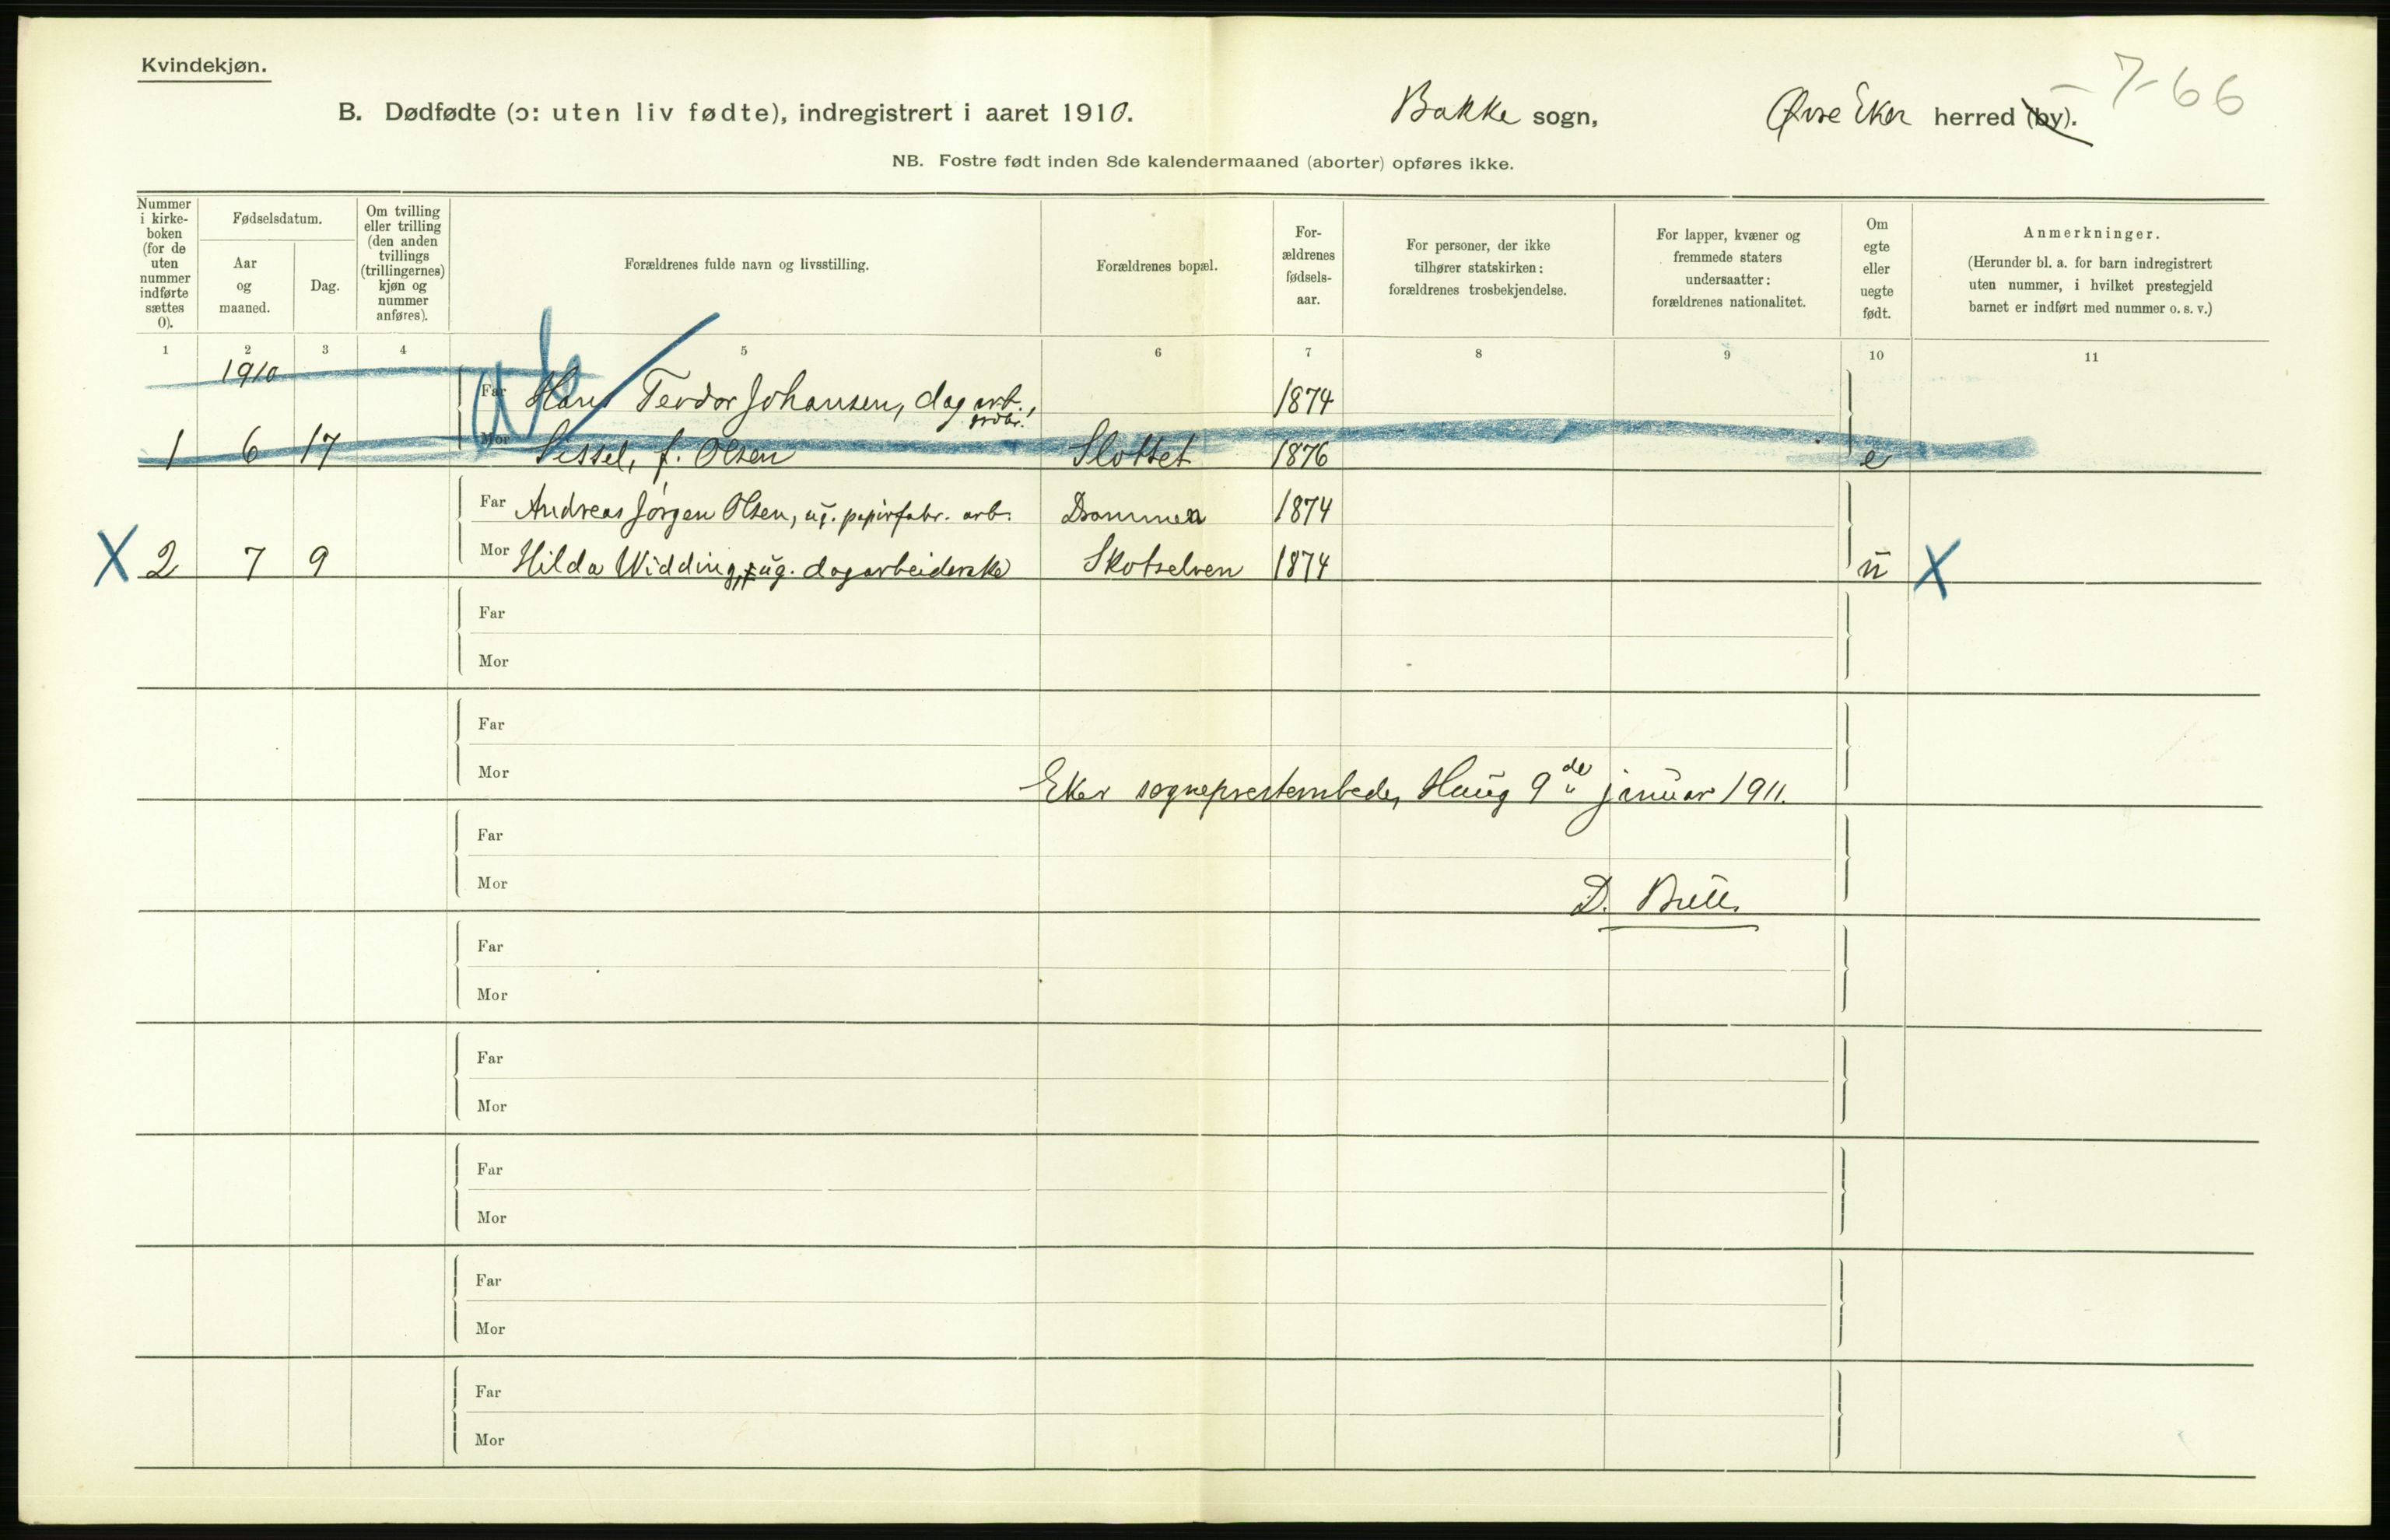 Kvindekjøn.
-7-66
B. Dødfødte (ɔ: uten liv fødte), indregistrert i aaret 1910. Bakke sogn, Øvre Eker herred (by).
NB. Fostre født inden 8de kalendermaaned (aborter) opføres ikke.
Nummer
i kirke-
boken
(for de
uten
nummer
indførte
sættes
0).
Fødselsdatum.
Aar
og
maaned.
Dag.
Om tvilling
eller trilling
(den anden
tvillings
(trillingernes)
kjøn og
nummer
anføres).
Forældrenes fulde navn og livsstilling.
Forældrenes bopæl.
For-
ældrenes
fødsels-
aar.
For personer, der ikke
tilhører statskirken:
forældrenes trosbekjendelse.
For lapper, kvæner og
fremmede staters
undersaatter:
forældrenes nationalitet.
Om
egte
eller
uegte
født.
Anmerkninger.
(Herunder bl. a. for barn indregistrert
uten nummer, i hvilket prestegjeld
barnet er indført med nummer o. s. v.)
1 2 3 4 5 6 7 8 9 10 11
1910
Far Hans Teodor Johansen, dagarb., 1874
1 6 17 Mor Sissel, f. Olsen Slottet 1876 e
Far Andreas Jørgen Olsen, ug. papirfabr. arb. Drammen 1874
X 2 7 9 Mor Hilda Widding, ug. dagarbeiderske Skotselven 1874 u X
Far
Mor
Far
Mor
Eker sogneprestembede, Haug 9de januar 1911.
Far
Mor
D. Bull.
Far
Mor
Far
Mor
Far
Mor
Far
Mor
Far
Mor